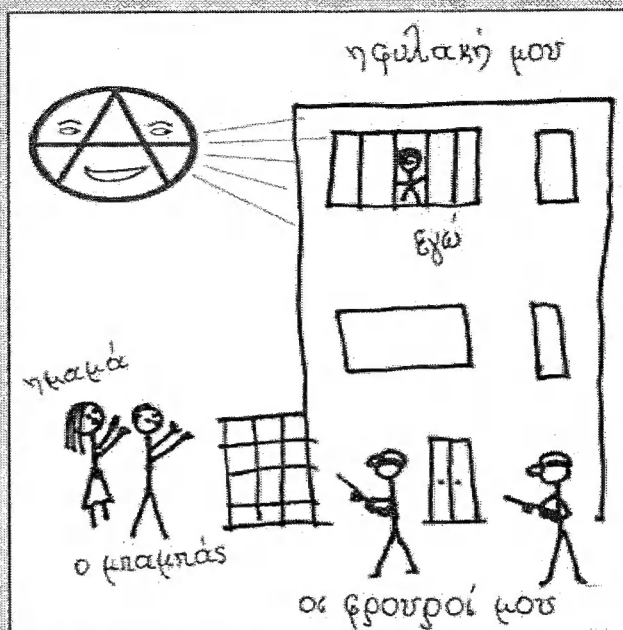 η φυλακή μου
εγώ
η μαμά
ο μπαμπάς
οι φρουροί μου